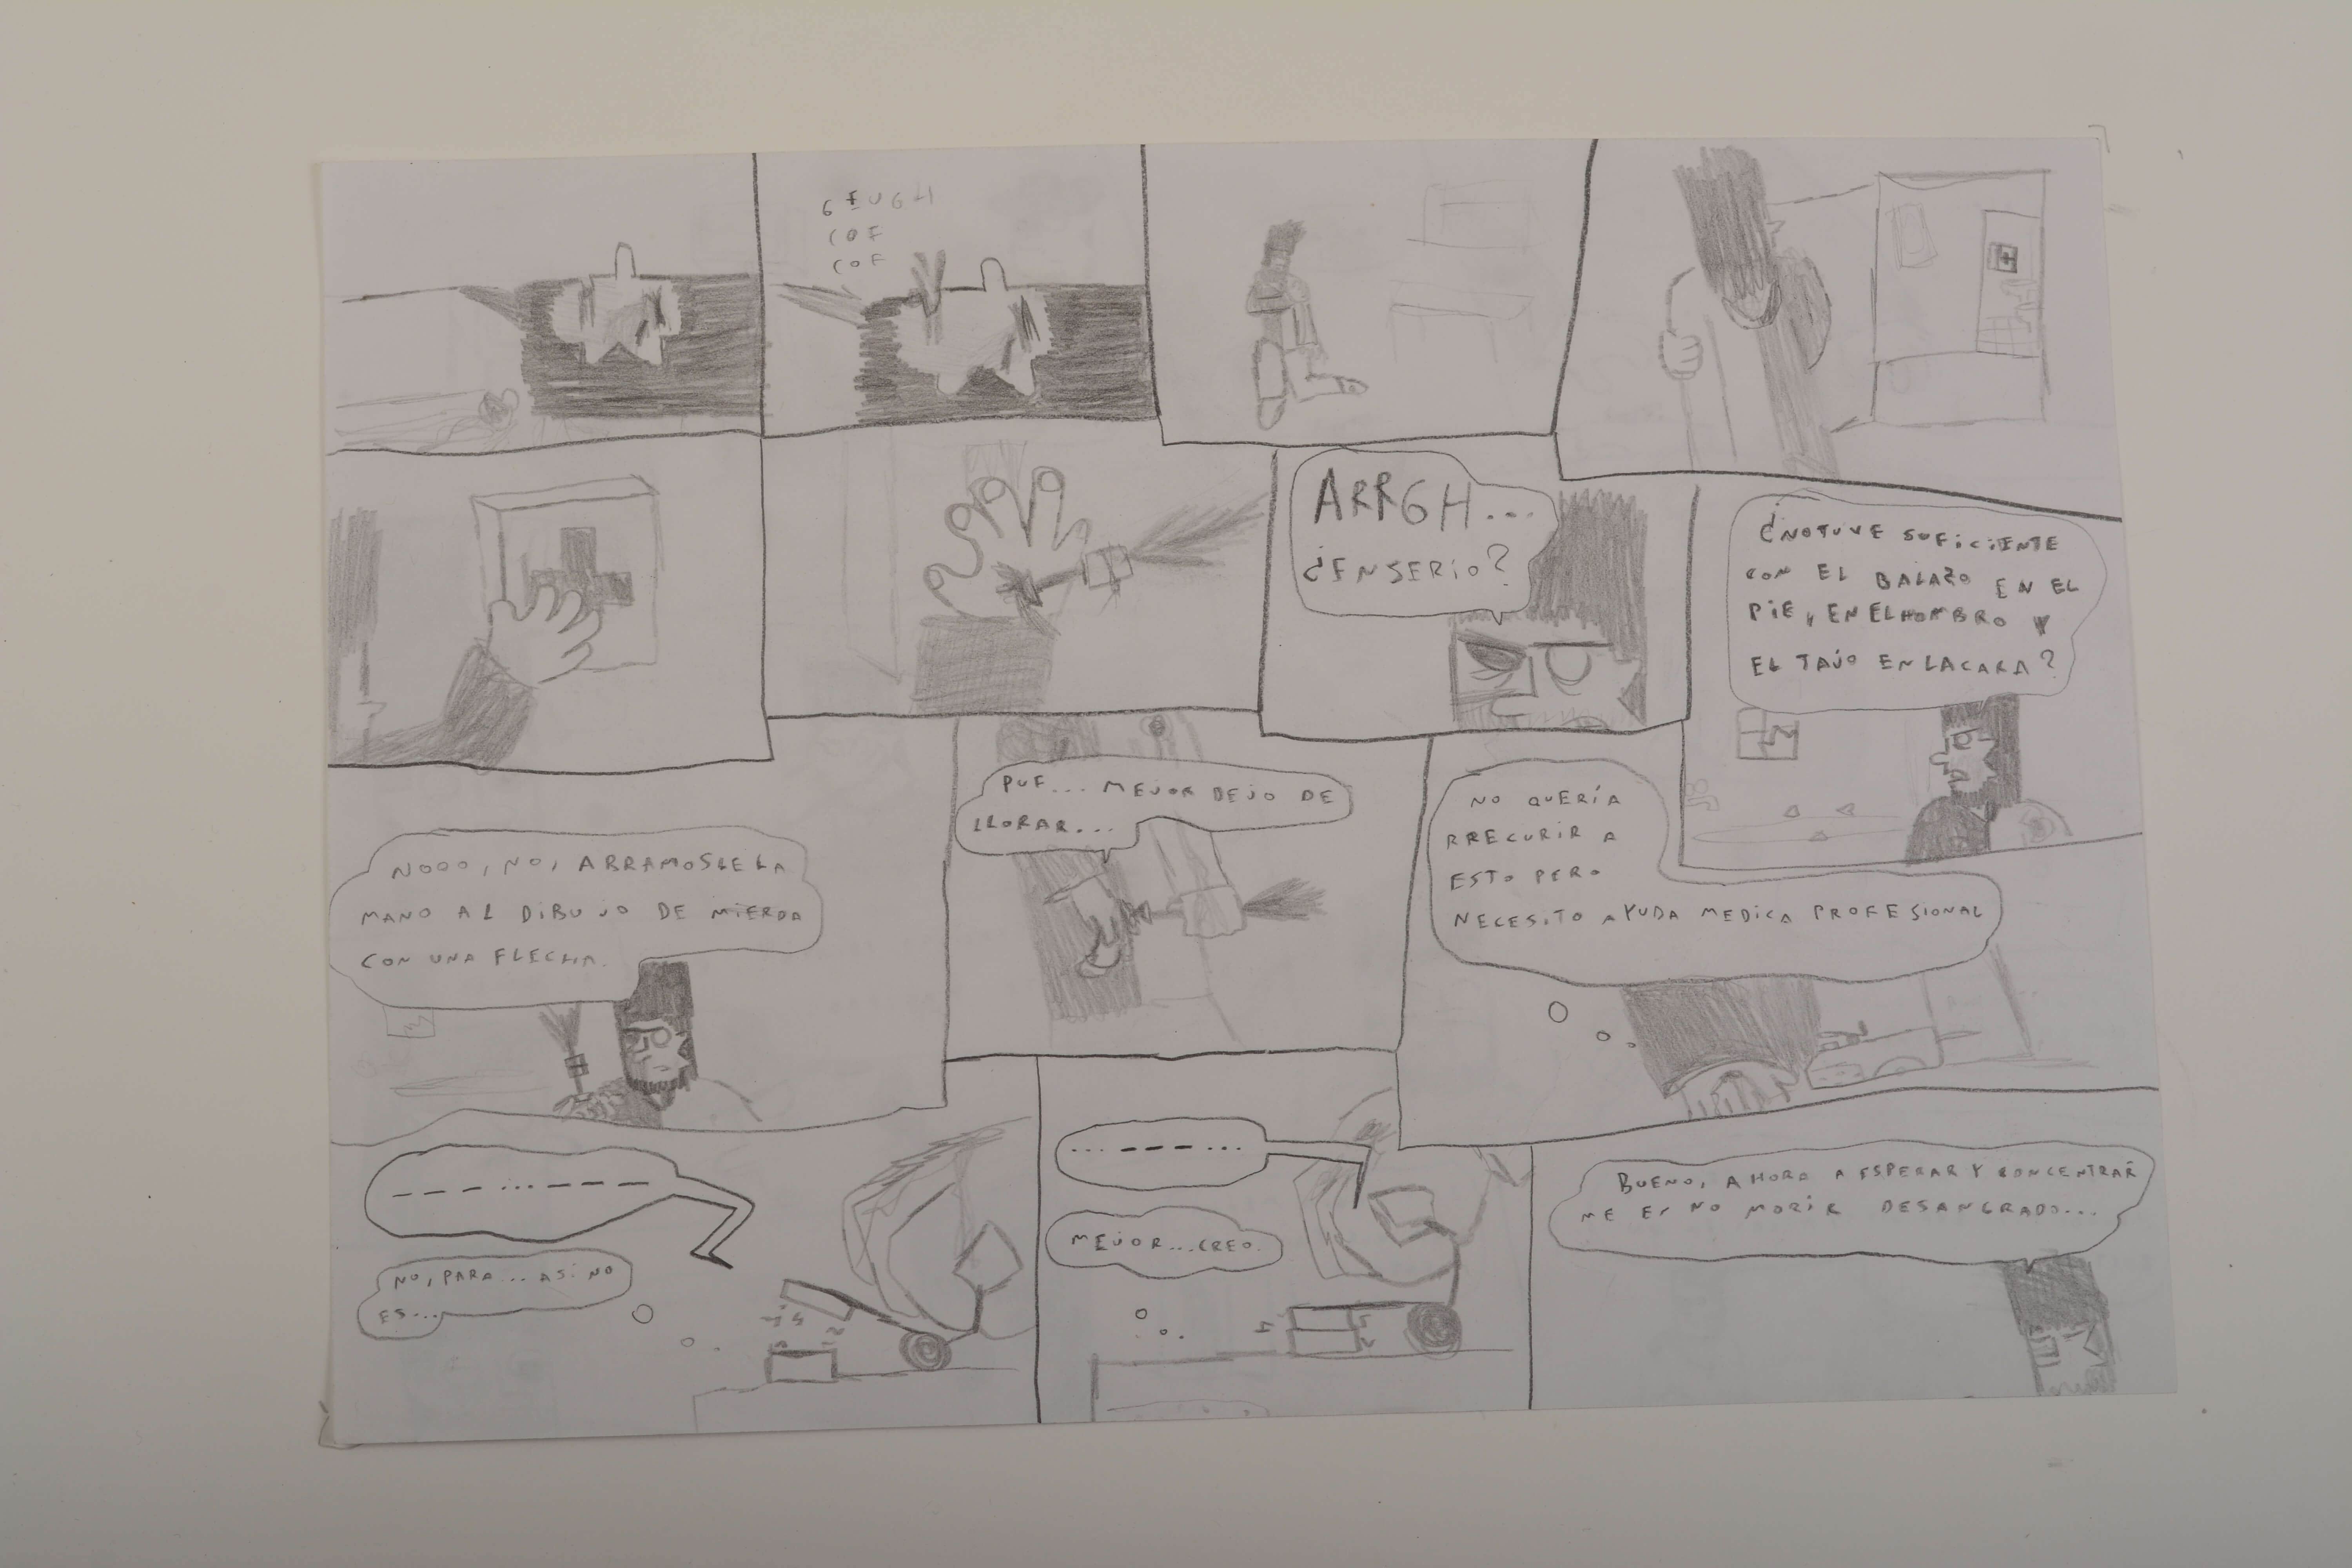 GEUGH
COF
COF
ARRGH...
¿ENSERIO?
¿NOTUVE SUFICIENTE
CON EL BALAZO EN EL
PIE, EN ELHOMBRO Y
EL TAJO EN LACARA?
NOOO, NO, ABRAMOSLE LA
MANO AL DIBUJO DE MIERDA
CON UNA FLECHA.
PUF... MEJOR DEJO DE
LLORAR...
NO QUERÍA
RRECURIR A
ESTO PERO
NECESITO AYUDA MEDICA PROFESIONAL
– – – ... – – –
NO, PARA... ASI NO
ES...
... – – – ...
MEJOR...CREO.
BUENO, AHORA A ESPERAR Y CONCENTRAR
ME EN NO MORIR DESANGRADO...